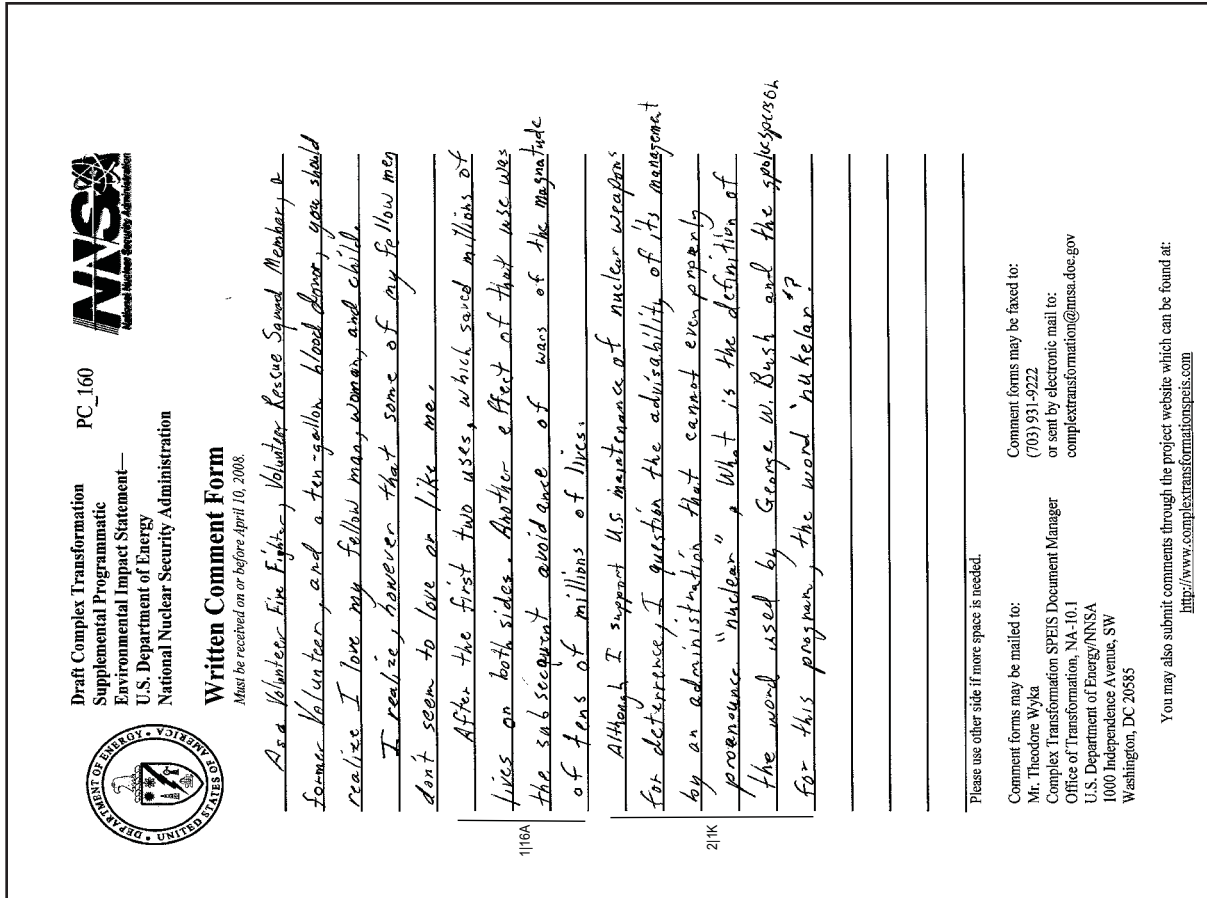 Draft Complex Transformation PC_160
Supplemental Programmatic
Environmental Impact Statement—
U.S. Department of Energy
National Nuclear Security Administration
NNSA
National Nuclear Security Administration
DEPARTMENT OF ENERGY • UNITED STATES OF AMERICA •
Written Comment Form
Must be received on or before April 10, 2008.
As a Volunteer Fire Fighter, Volunteer Rescue Squad Member, a
former Volunteer, and a ten-gallon blood donor, you should
realize I love my fellow man, woman, and child.
I realize, however that some of my fellow men
don't seem to love or like me.
After the first two uses, which saved millions of
lives on both sides. Another effect of that use was
the subsequent avoidance of wars of the magnatude
of tens of millions of lives.
1|16A
Although I support U.S. maintenance of nuclear weapons
for deterrence, I question the advisability of its management
by an administration that cannot even properly
pronounce "nuclear". What is the definition of
the word used by George W. Bush and the spokesperson
for this program, the word "nukelar"?
2|1K
Please use other side if more space is needed.
Comment forms may be mailed to:
Mr. Theodore Wyka
Complex Transformation SPEIS Document Manager
Office of Transformation, NA-10.1
U.S. Department of Energy/NNSA
1000 Independence Avenue, SW
Washington, DC 20585
Comment forms may be faxed to:
(703) 931-9222
or sent by electronic mail to:
complextransformation@nnsa.doe.gov
You may also submit comments through the project website which can be found at:
http://www.complextransformationspeis.com